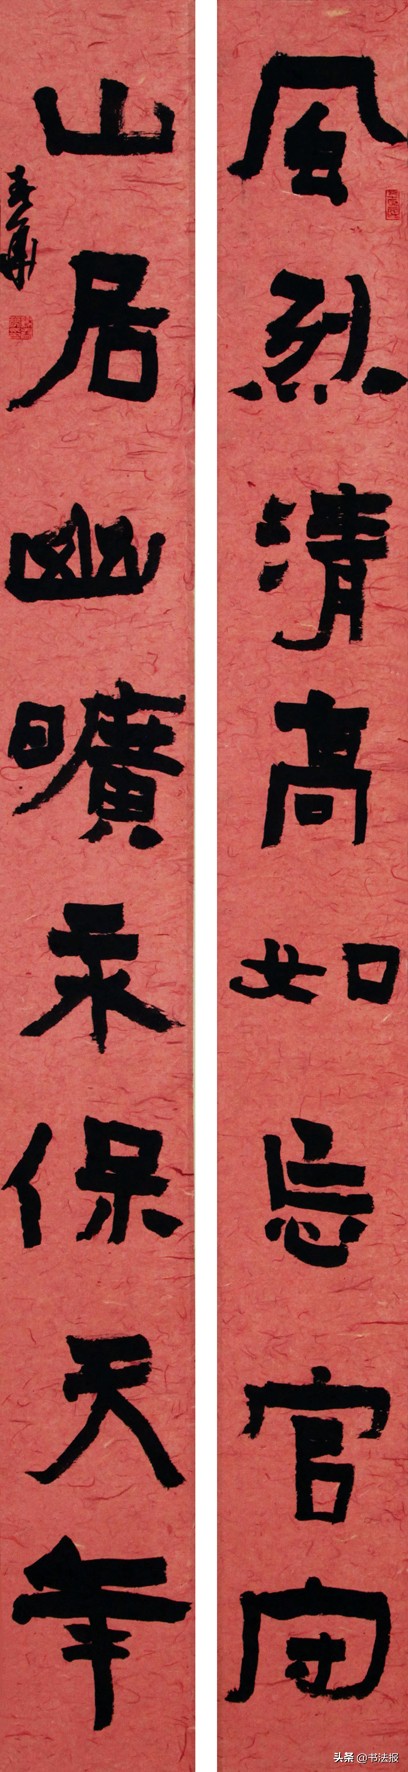 風烈清高如忘官守
山居幽曠永保天年
头条 @书法报